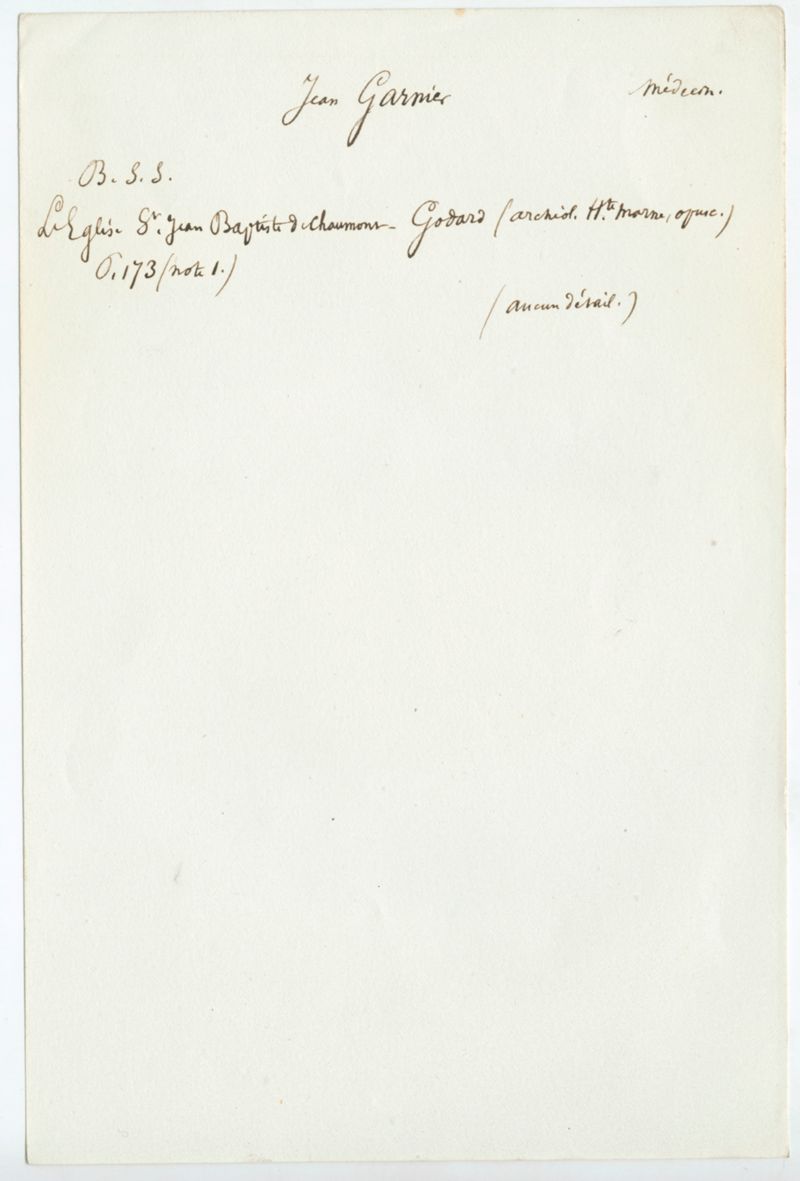 Jean Garnier Médecin.
B. S. S.
L'Eglise St. Jean Baptiste de Chaumont - Godard (archéol. Hte. Marne, opusc.)
P. 173 (note 1.)
(aucun détail.)